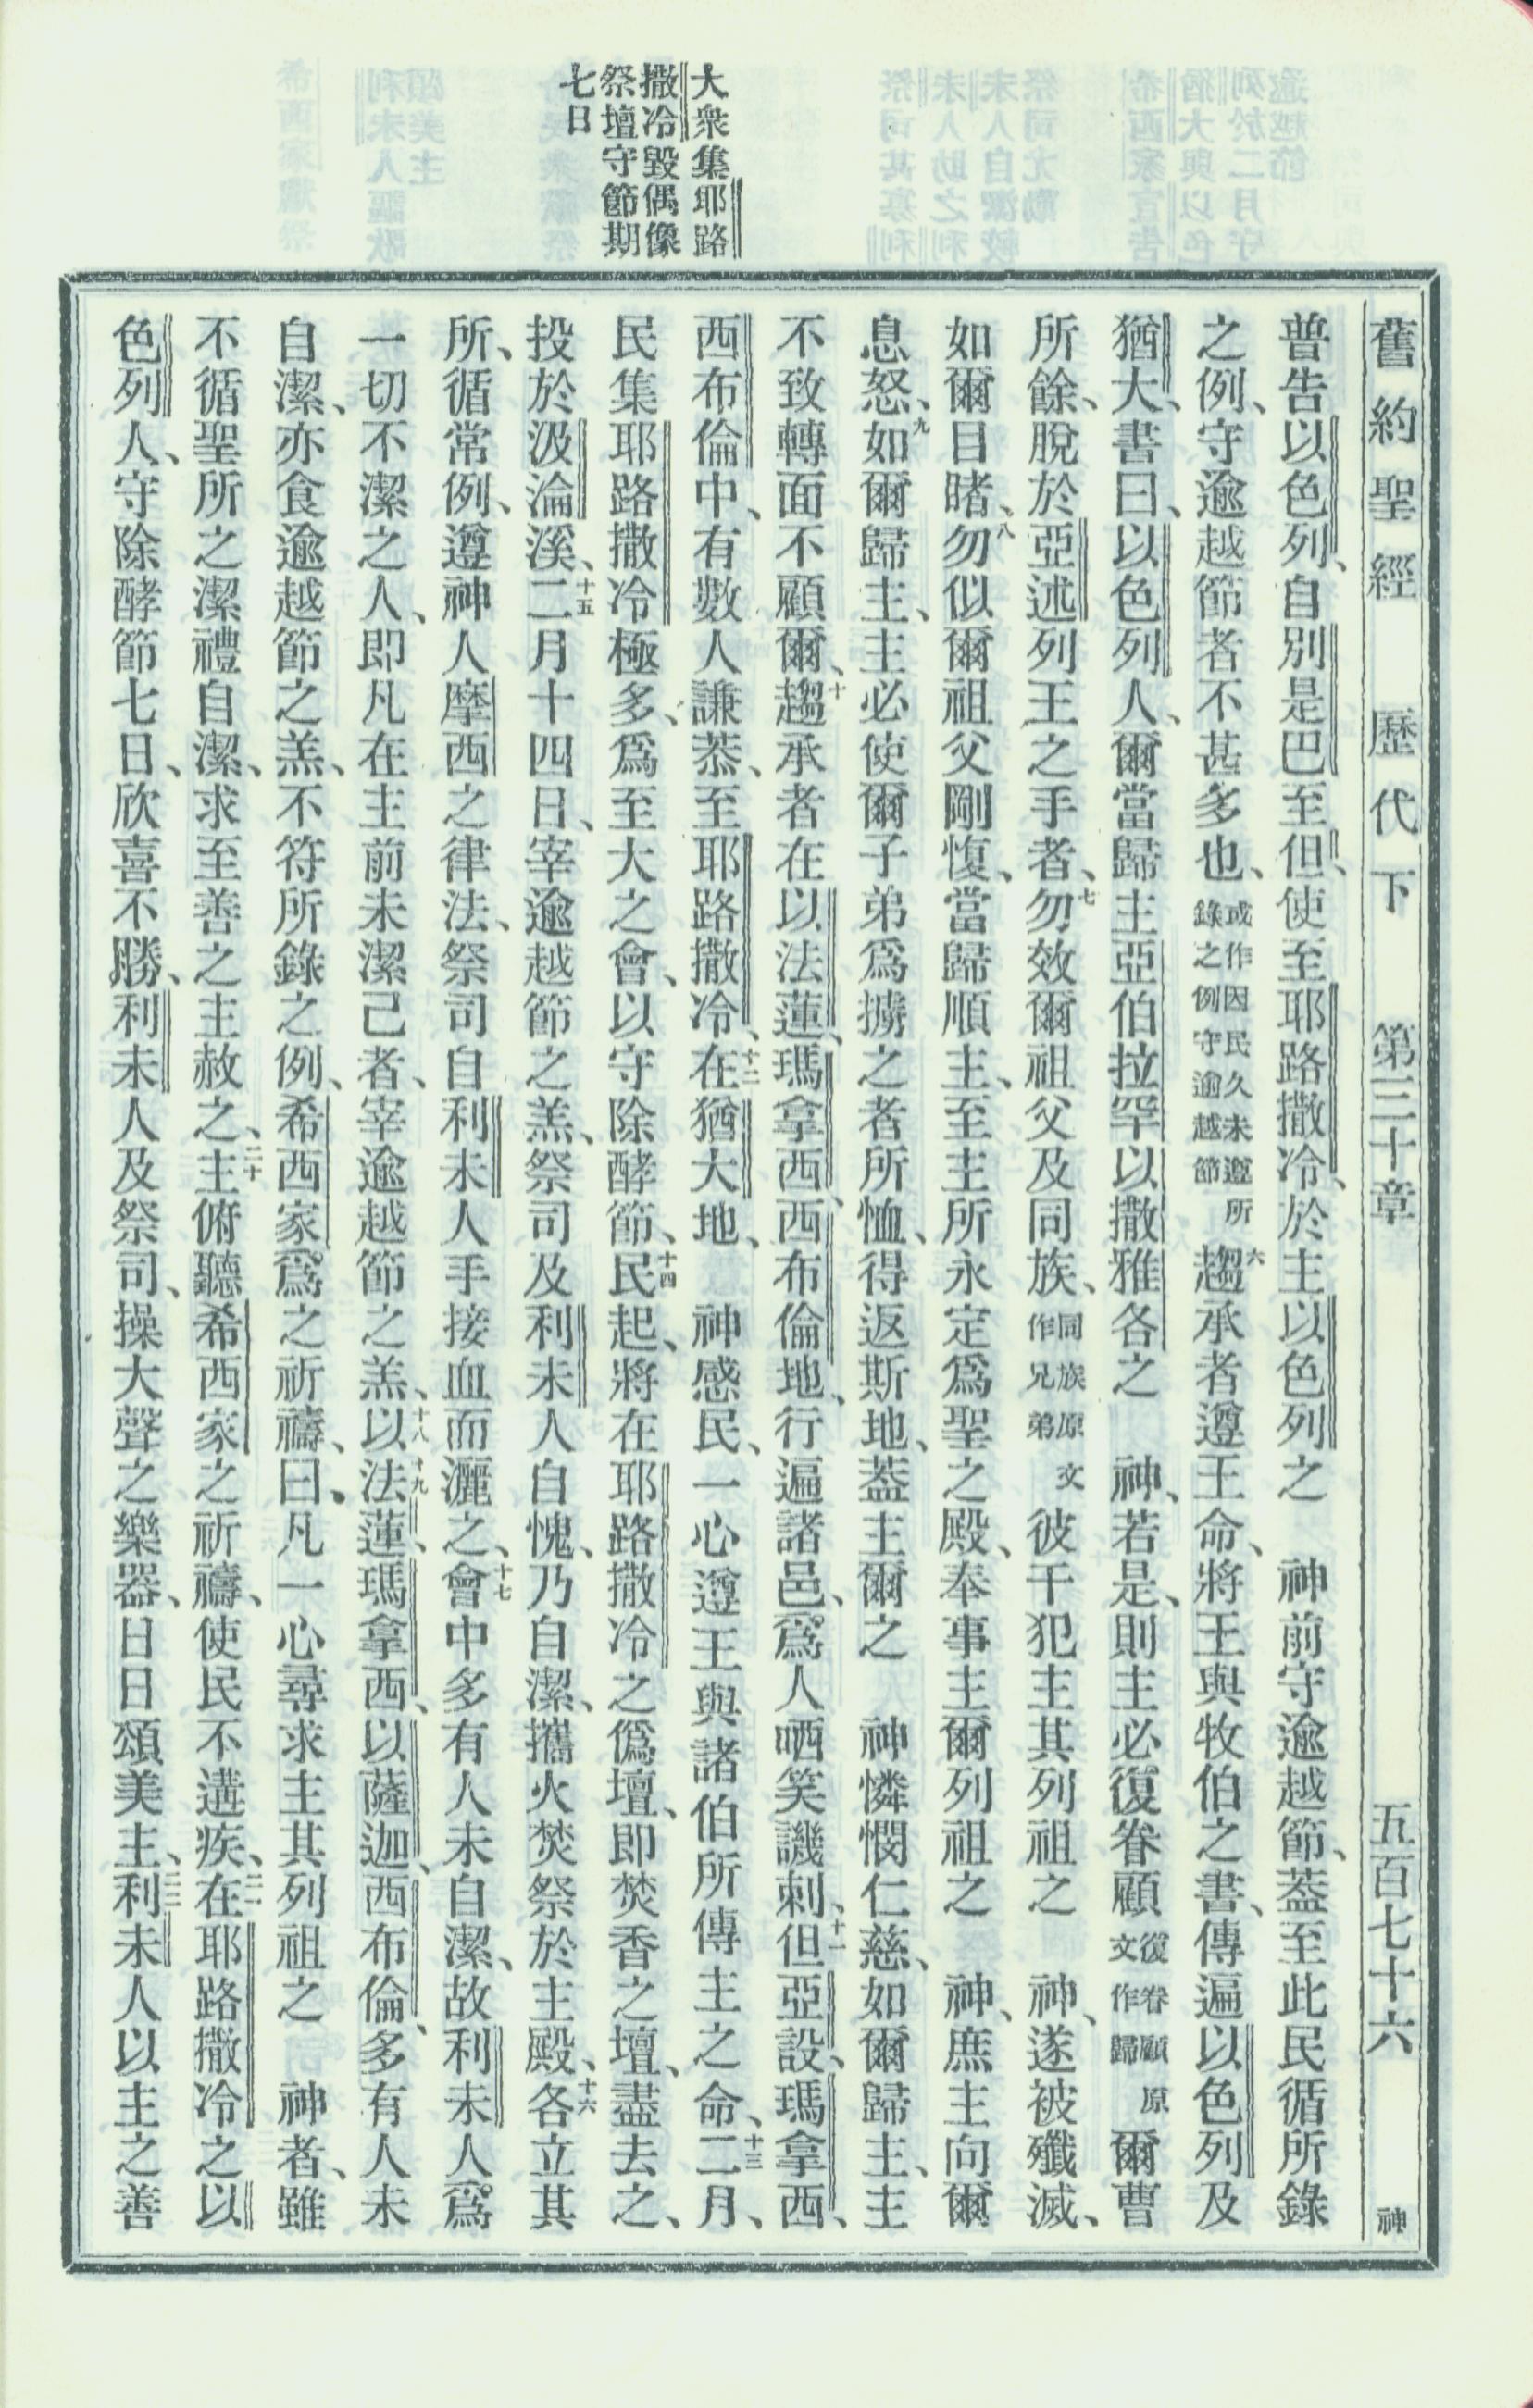 舊約聖經 歷代下 第三十章 五百七十六 神
大衆集耶路
撒冷毀偶像
祭壇守節期
七日
普告以色列、自別是巴至但、使至耶路撒冷、於主以色列之 神前守逾越節、蓋至此民循所錄
之例、守逾越節者不甚多也、或作因民久未遵所錄之例守逾越節 六趨承者遵王命、將王與牧伯之書、傳遍以色列及
猶大、書曰、以色列人、爾當歸主亞伯拉罕以撒雅各之 神、若是、則主必復眷顧復眷顧原文作歸爾曹
所餘、脫於亞述列王之手者、七勿效爾祖父及同族、同族原文作兄弟彼干犯主其列祖之 神、遂被殲滅、
如爾目睹、八勿似爾祖父剛愎、當歸順主、至主所永定爲聖之殿、奉事主爾列祖之 神、庶主向爾
息怒、九如爾歸主、主必使爾子弟爲擄之者所恤、得返斯地、蓋主爾之 神憐憫仁慈、如爾歸主、主
不致轉面不顧爾、十趨承者在以法蓮、瑪拿西、西布倫地、行遍諸邑、爲人哂笑譏刺、十一但亞設、瑪拿西、
西布倫中、有數人謙恭、至耶路撒冷、十二在猶大地、 神感民、一心遵王與諸伯所傳主之命、十三二月、
民集耶路撒冷極多、爲至大之會、以守除酵節、十四民起、將在耶路撒冷之僞壇、即焚香之壇、盡去之、
投於汲淪溪、十五二月十四日、宰逾越節之羔、祭司及利未人自愧、乃自潔、攜火焚祭於主殿、十六各立其
所、循常例、遵神人摩西之律法、祭司自利未人手接血而灑之、十七會中多有人未自潔、故利未人爲
一切不潔之人、即凡在主前未潔己者、宰逾越節之羔、十八以十九法蓮、瑪拿西、以薩迦、西布倫、多有人未
自潔、亦食逾越節之羔、不符所錄之例、希西家爲之祈禱、曰、凡一心尋求主其列祖之 神者、雖
不循聖所之潔禮自潔、求至善之主赦之、二十主俯聽希西家之祈禱、使民不遘疾、二一在耶路撒冷之以
色列人、守除酵節七日、欣喜不勝、利未人及祭司、操大聲之樂器、日日頌美主、二二利未人以主之善